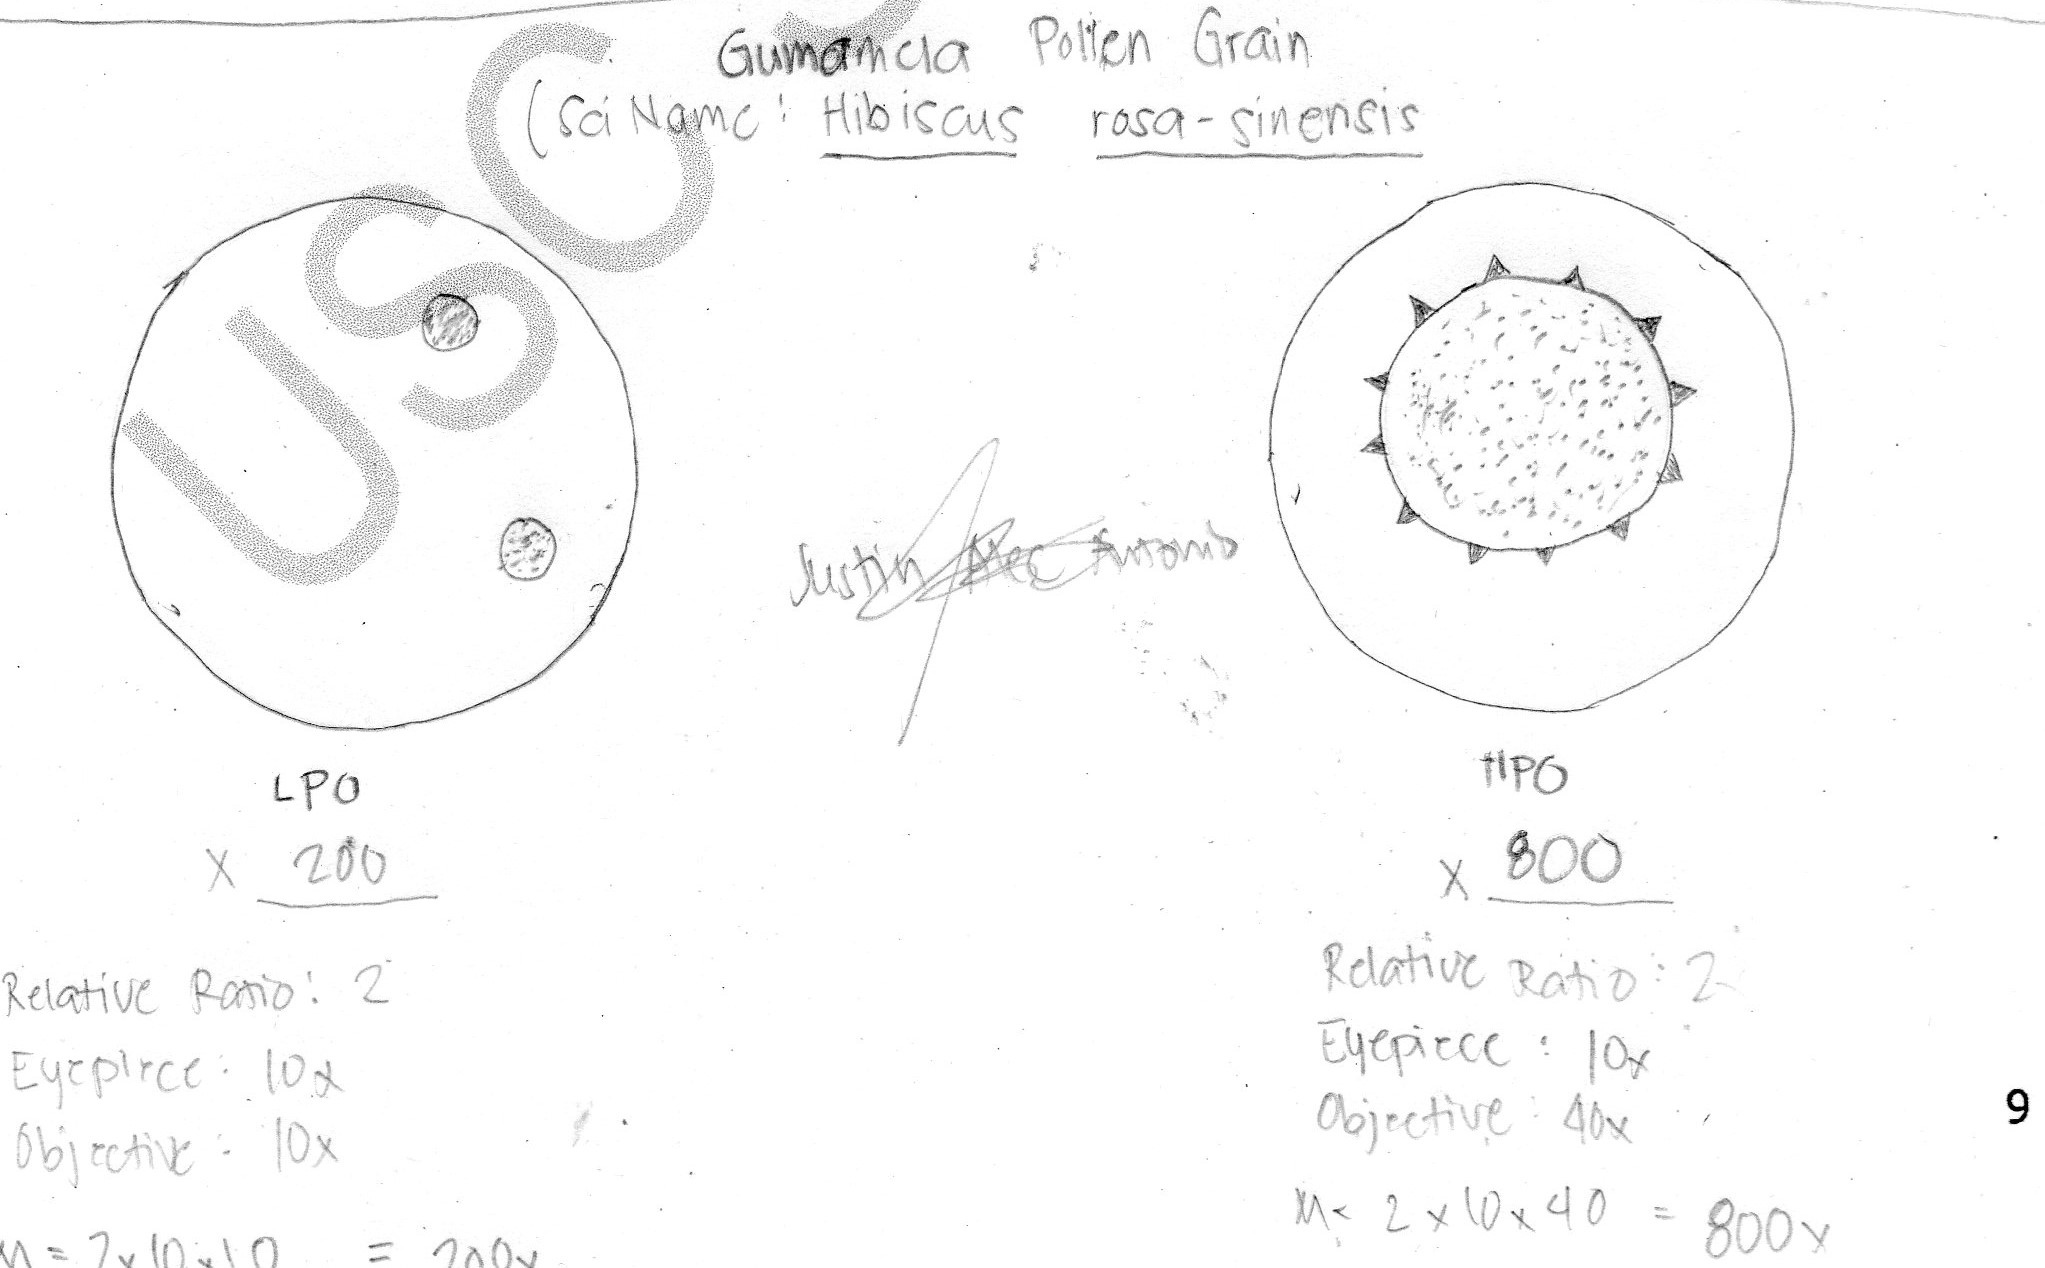 Gumamela Pollen Grain
(Sci Name: Hibiscus rosa-sinensis
USC
Justin Antonio
LPO
x 200
Relative Ratio: 2
Eyepiece: 10x
Objective: 10x
M = 2x10x10 = 200x
HPO
x 800
Relative Ratio: 2
Eyepiece: 10x
Objective: 40x
M = 2x10x40 = 800x
9